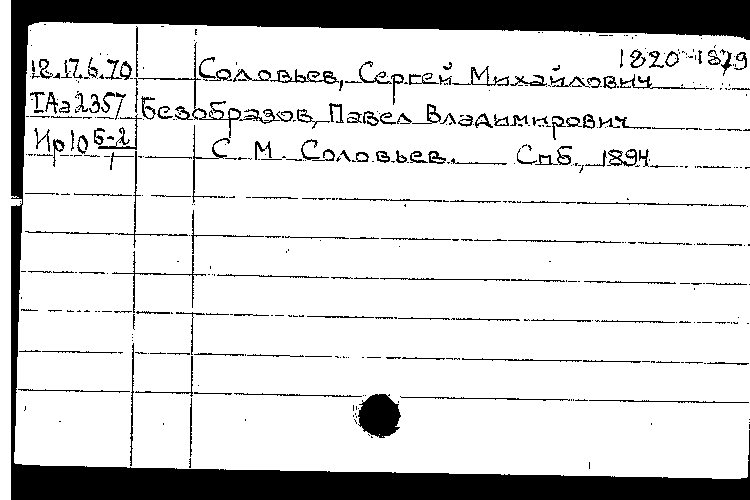 1820-1879
18.17.6.70 Соловьев, Сергей Михайлович
IAa2357 Безобразов, Павел Владимирович
Ир10 Б-2/1 С. М. Соловьев. Спб., 1894.